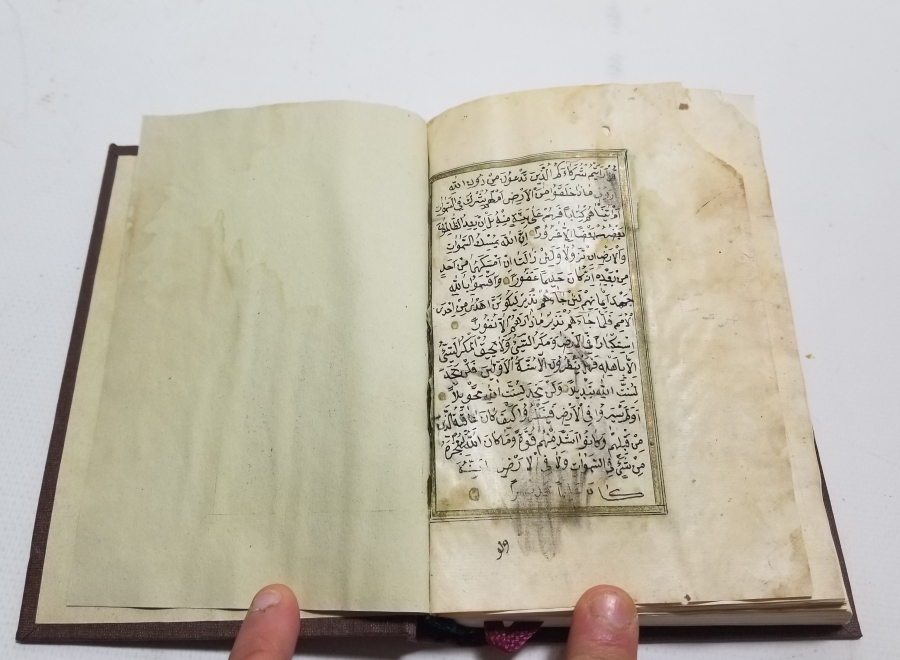 أرأيتم شركاءكم الذين تدعون من دون الله
ماذا خلقوا من الأرض أم لهم شرك في السموات
أم آتيناهم كتابا فهم على بينة منه بل إن يعد الظالمون
بعضهم بعضا إلا غرورا إن الله يمسك السموات
والأرض أن تزولا ولئن زالتا إن أمسكهما من أحد
من بعده إنه كان حليما غفورا وأقسموا بالله
جهد أيمانهم لئن جاءهم نذير ليكونن أهدى من إحدى
الأمم فلما جاءهم نذير ما زادهم إلا نفورا
استكبارا في الأرض ومكر السيئ ولا يحيق المكر السيئ
إلا بأهله فهل ينظرون إلا سنة الأولين فلن تجد
لسنت الله تبديلا ولن تجد لسنت الله تحويلا
أولم يسيروا في الأرض فينظروا كيف كان عاقبة الذين
من قبلهم وكانوا أشد منهم قوة وما كان الله ليعجزه
من شيئ في السموات ولا في الأرض إنه
كان
ولو